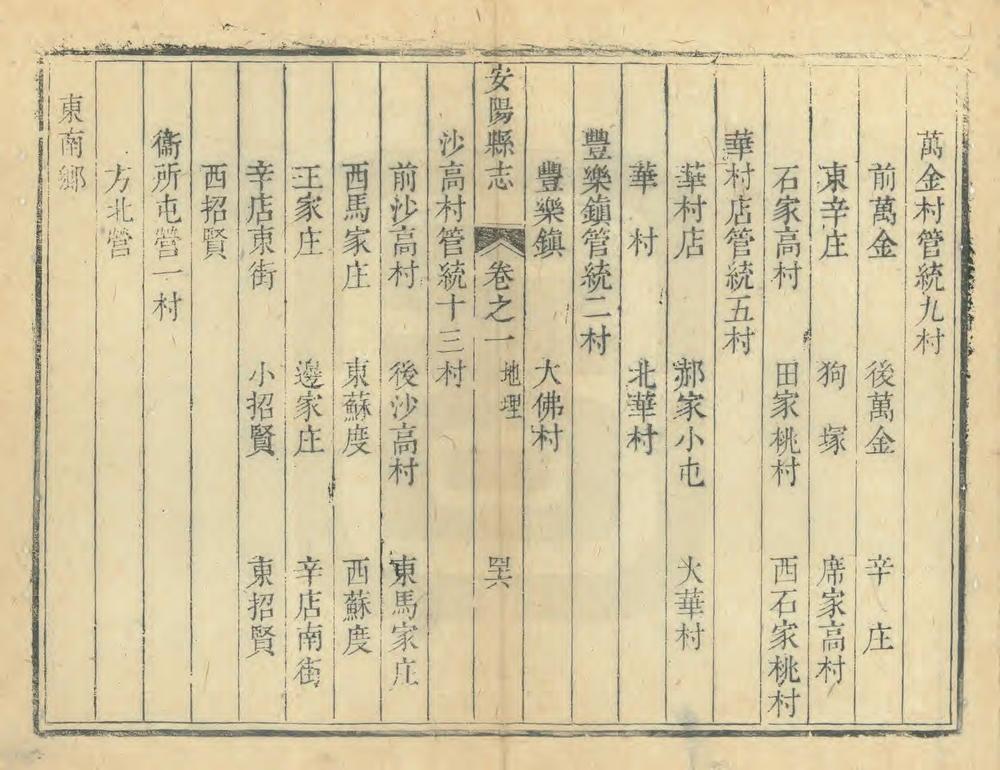 萬金村管統九村
前萬金 後萬金 辛庄
東辛庄 狗塚 席家高村
石家高村 田家桃村 西石家桃村
華村店管統五村
華村店 郝家小屯 大華村
華村 北華村
豐樂鎮管統二村
豐樂鎮 大佛村
安陽縣志 卷之一 地理
沙高村管統十三村
前沙高村 後沙高村 東馬家庄
西馬家庄 東蘇度 西蘇度
王家庄 邊家庄 辛店南街
辛店東街 小招賢 東招賢
西招賢
衞所屯營一村
方北營
東南鄉